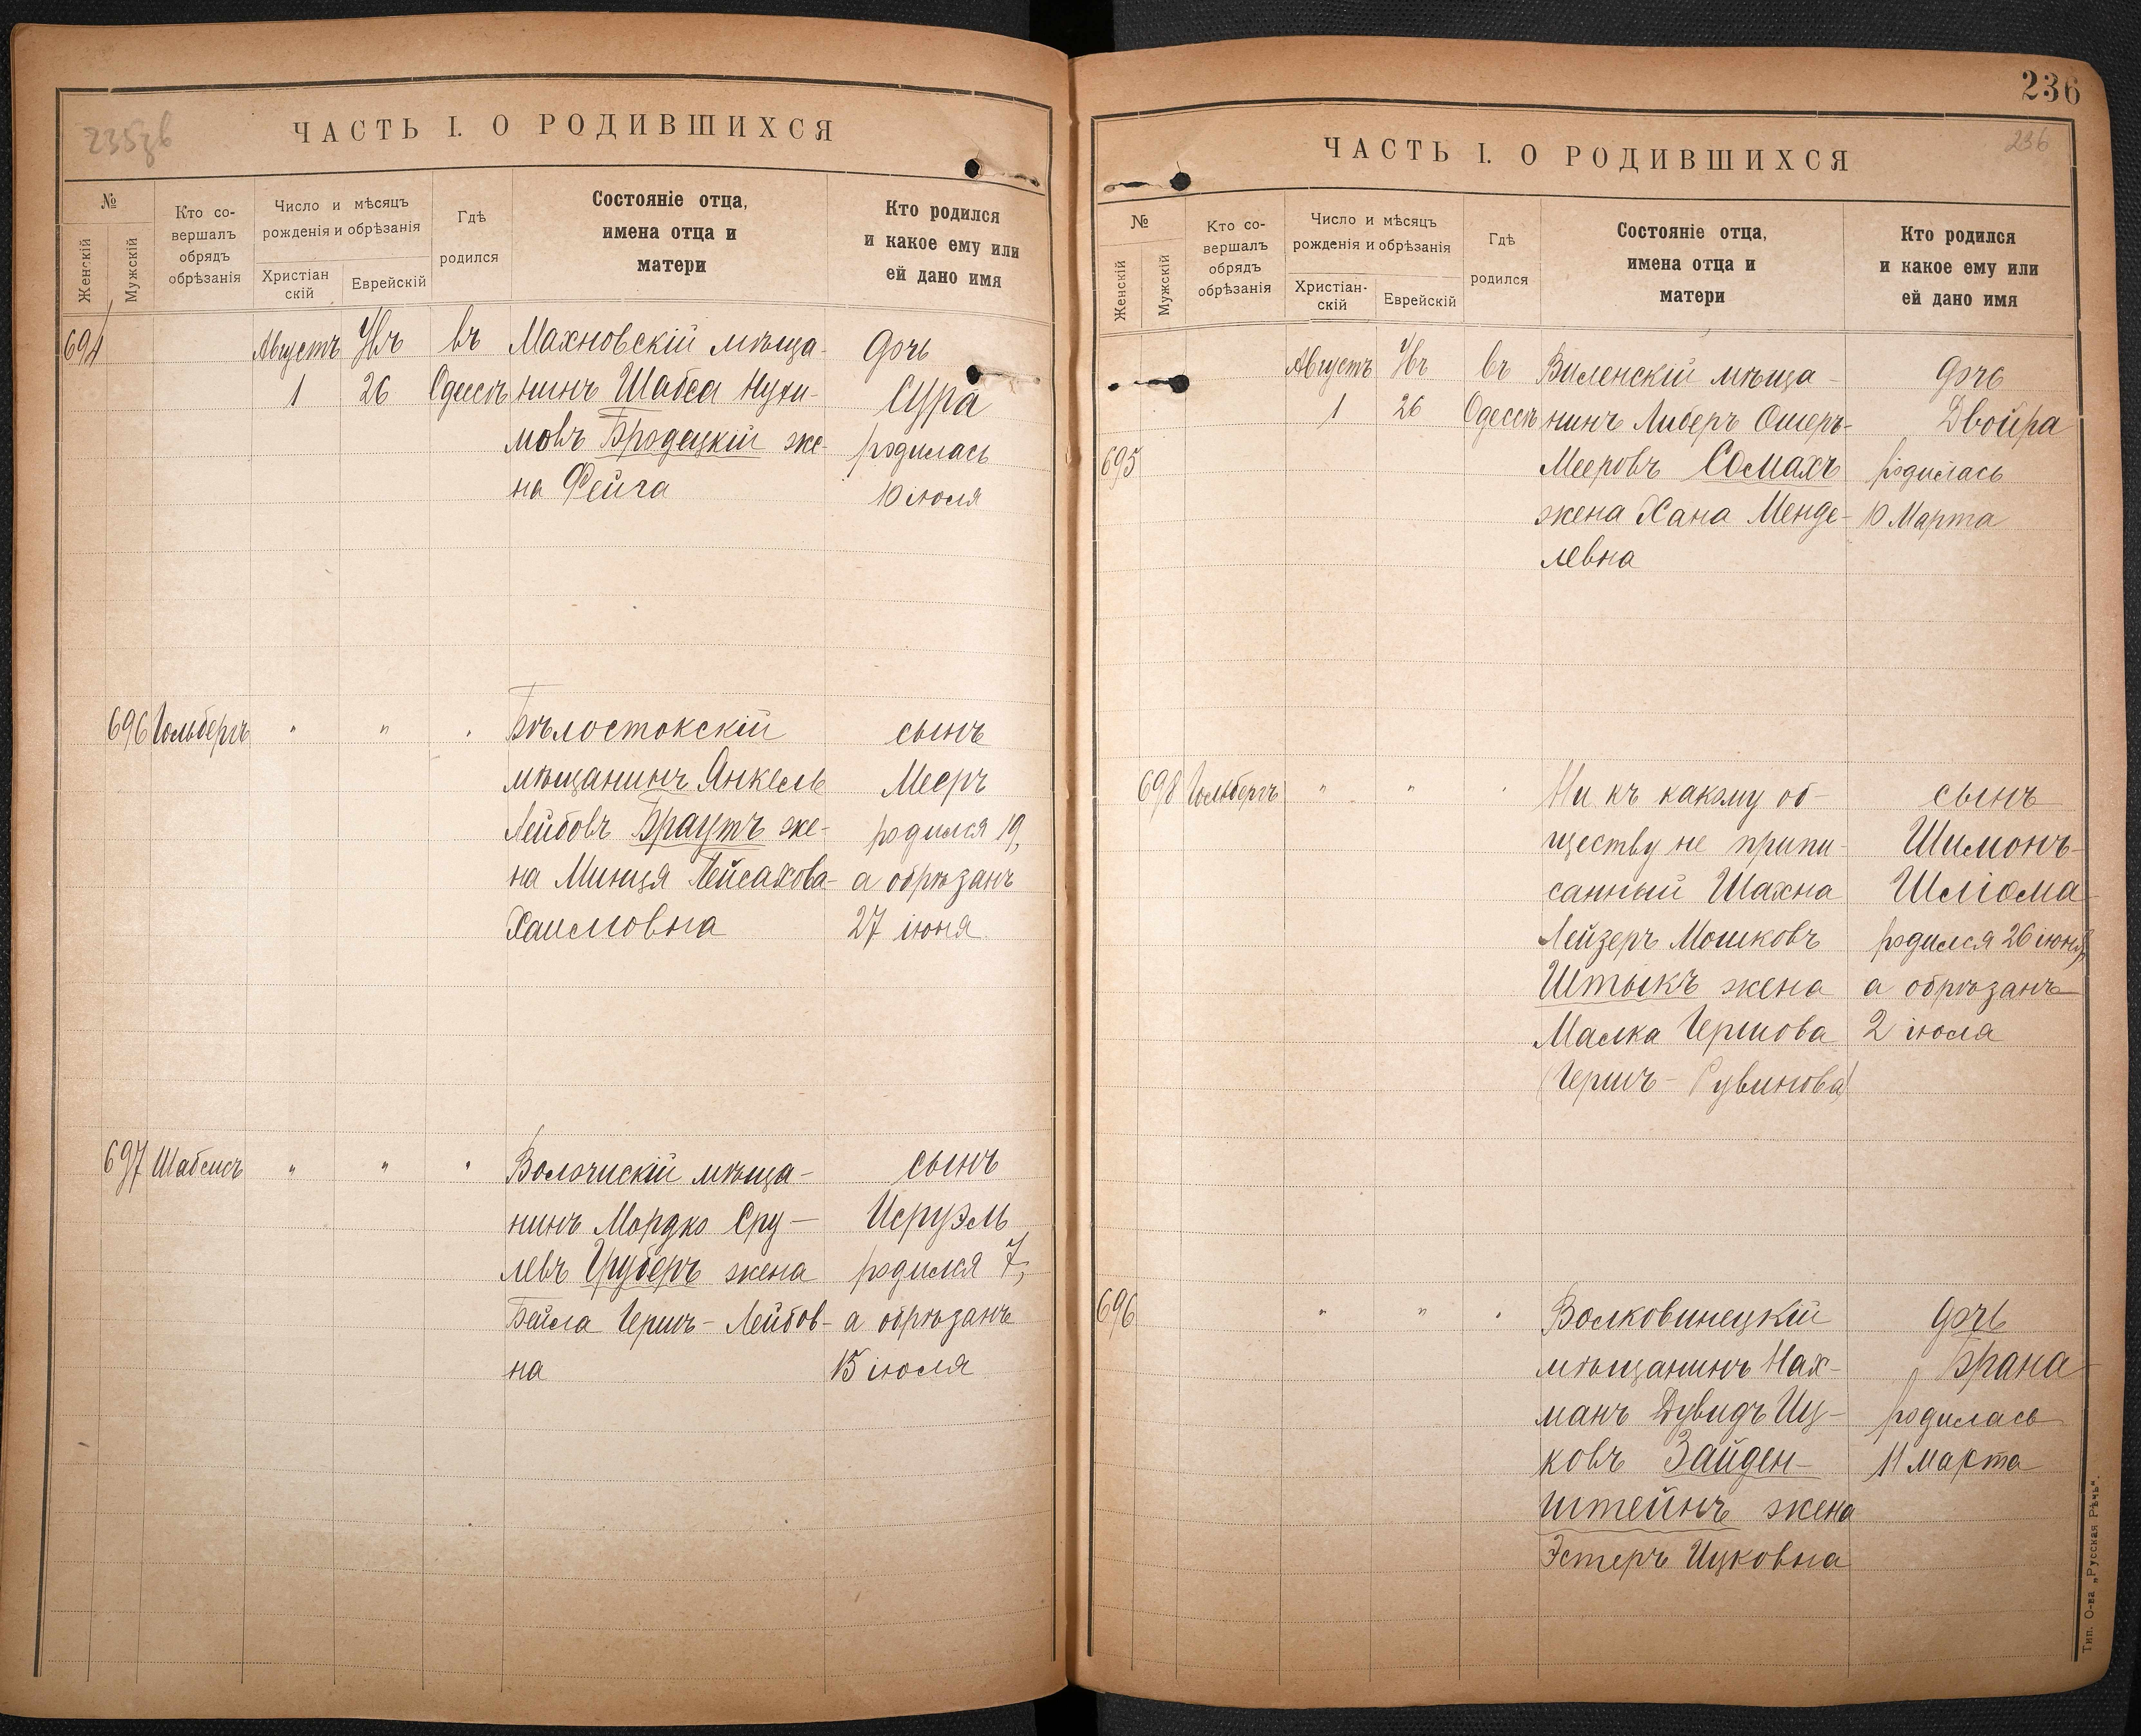 235зв
ЧАСТЬ I. О РОДИВШИХСЯ
№
Женскій
Мужскій
Кто со-
вершалъ
обрядъ
обрѣзанія
Число и мѣсяцъ
рожденія и обрѣзанія
Христіан
скій
Еврейскій
Гдѣ
родился
Состояніе отца,
имена отца и
матери
Кто родился
и какое ему или
ей дано имя
694
Августъ
1
26
въ
Одессѣ
Махновскій мѣща-
нинъ Шабса Нухи-
мовъ Бродецкій же-
на Фейга
дочь
Сура
родилась
10 іюля
696 Гольбергъ " " "
Бѣлостокскій
мѣщанинъ Янкель
Лейбовъ Браутъ же-
на Минця Пейсахова-
Хаимовна
сынъ
Мееръ
родился 19,
а обрѣзанъ
27 іюня
697 Шабсисъ " " "
Волочискій мѣща-
нинъ Мордко Сру-
левъ Груберъ жена
Бейла Гершъ-Лейбов-
на
сынъ
Исруэль
родился 7,
а обрѣзанъ
15 іюля
236
236
ЧАСТЬ I. О РОДИВШИХСЯ
№
Женскій
Мужскій
Кто со-
вершалъ
обрядъ
обрѣзанія
Число и мѣсяцъ
рожденія и обрѣзанія
Христіан-
скій
Еврейскій
Гдѣ
родился
Состояніе отца,
имена отца и
матери
Кто родился
и какое ему или
ей дано имя
695
Августъ
1
26
въ
Одессѣ
Виленскій мѣща-
нинъ Либеръ Ошеръ-
Мееровъ Сомахъ
жена Хана Менде-
левна
дочь
Двойра
родилась
10 Марта
698 Гольбергъ " " "
Ни къ какому об-
ществу не припи-
санный Шахна
Лейзеръ Мошковъ
Штыкъ жена
Малка Гершова
(Гершъ-Рувинова)
сынъ
Шимонъ-
Шлiома
родился 26 іюня,
а обрѣзанъ
2 іюля
696 " " "
Волковинецкій
мѣщанинъ Нах-
манъ Дувидъ Иц-
ковъ Зайден-
штейнъ жена
Эстеръ Ицковна
дочь
Брана
родилась
11 марта
Тип. О-ва „Русская Рѣчь".